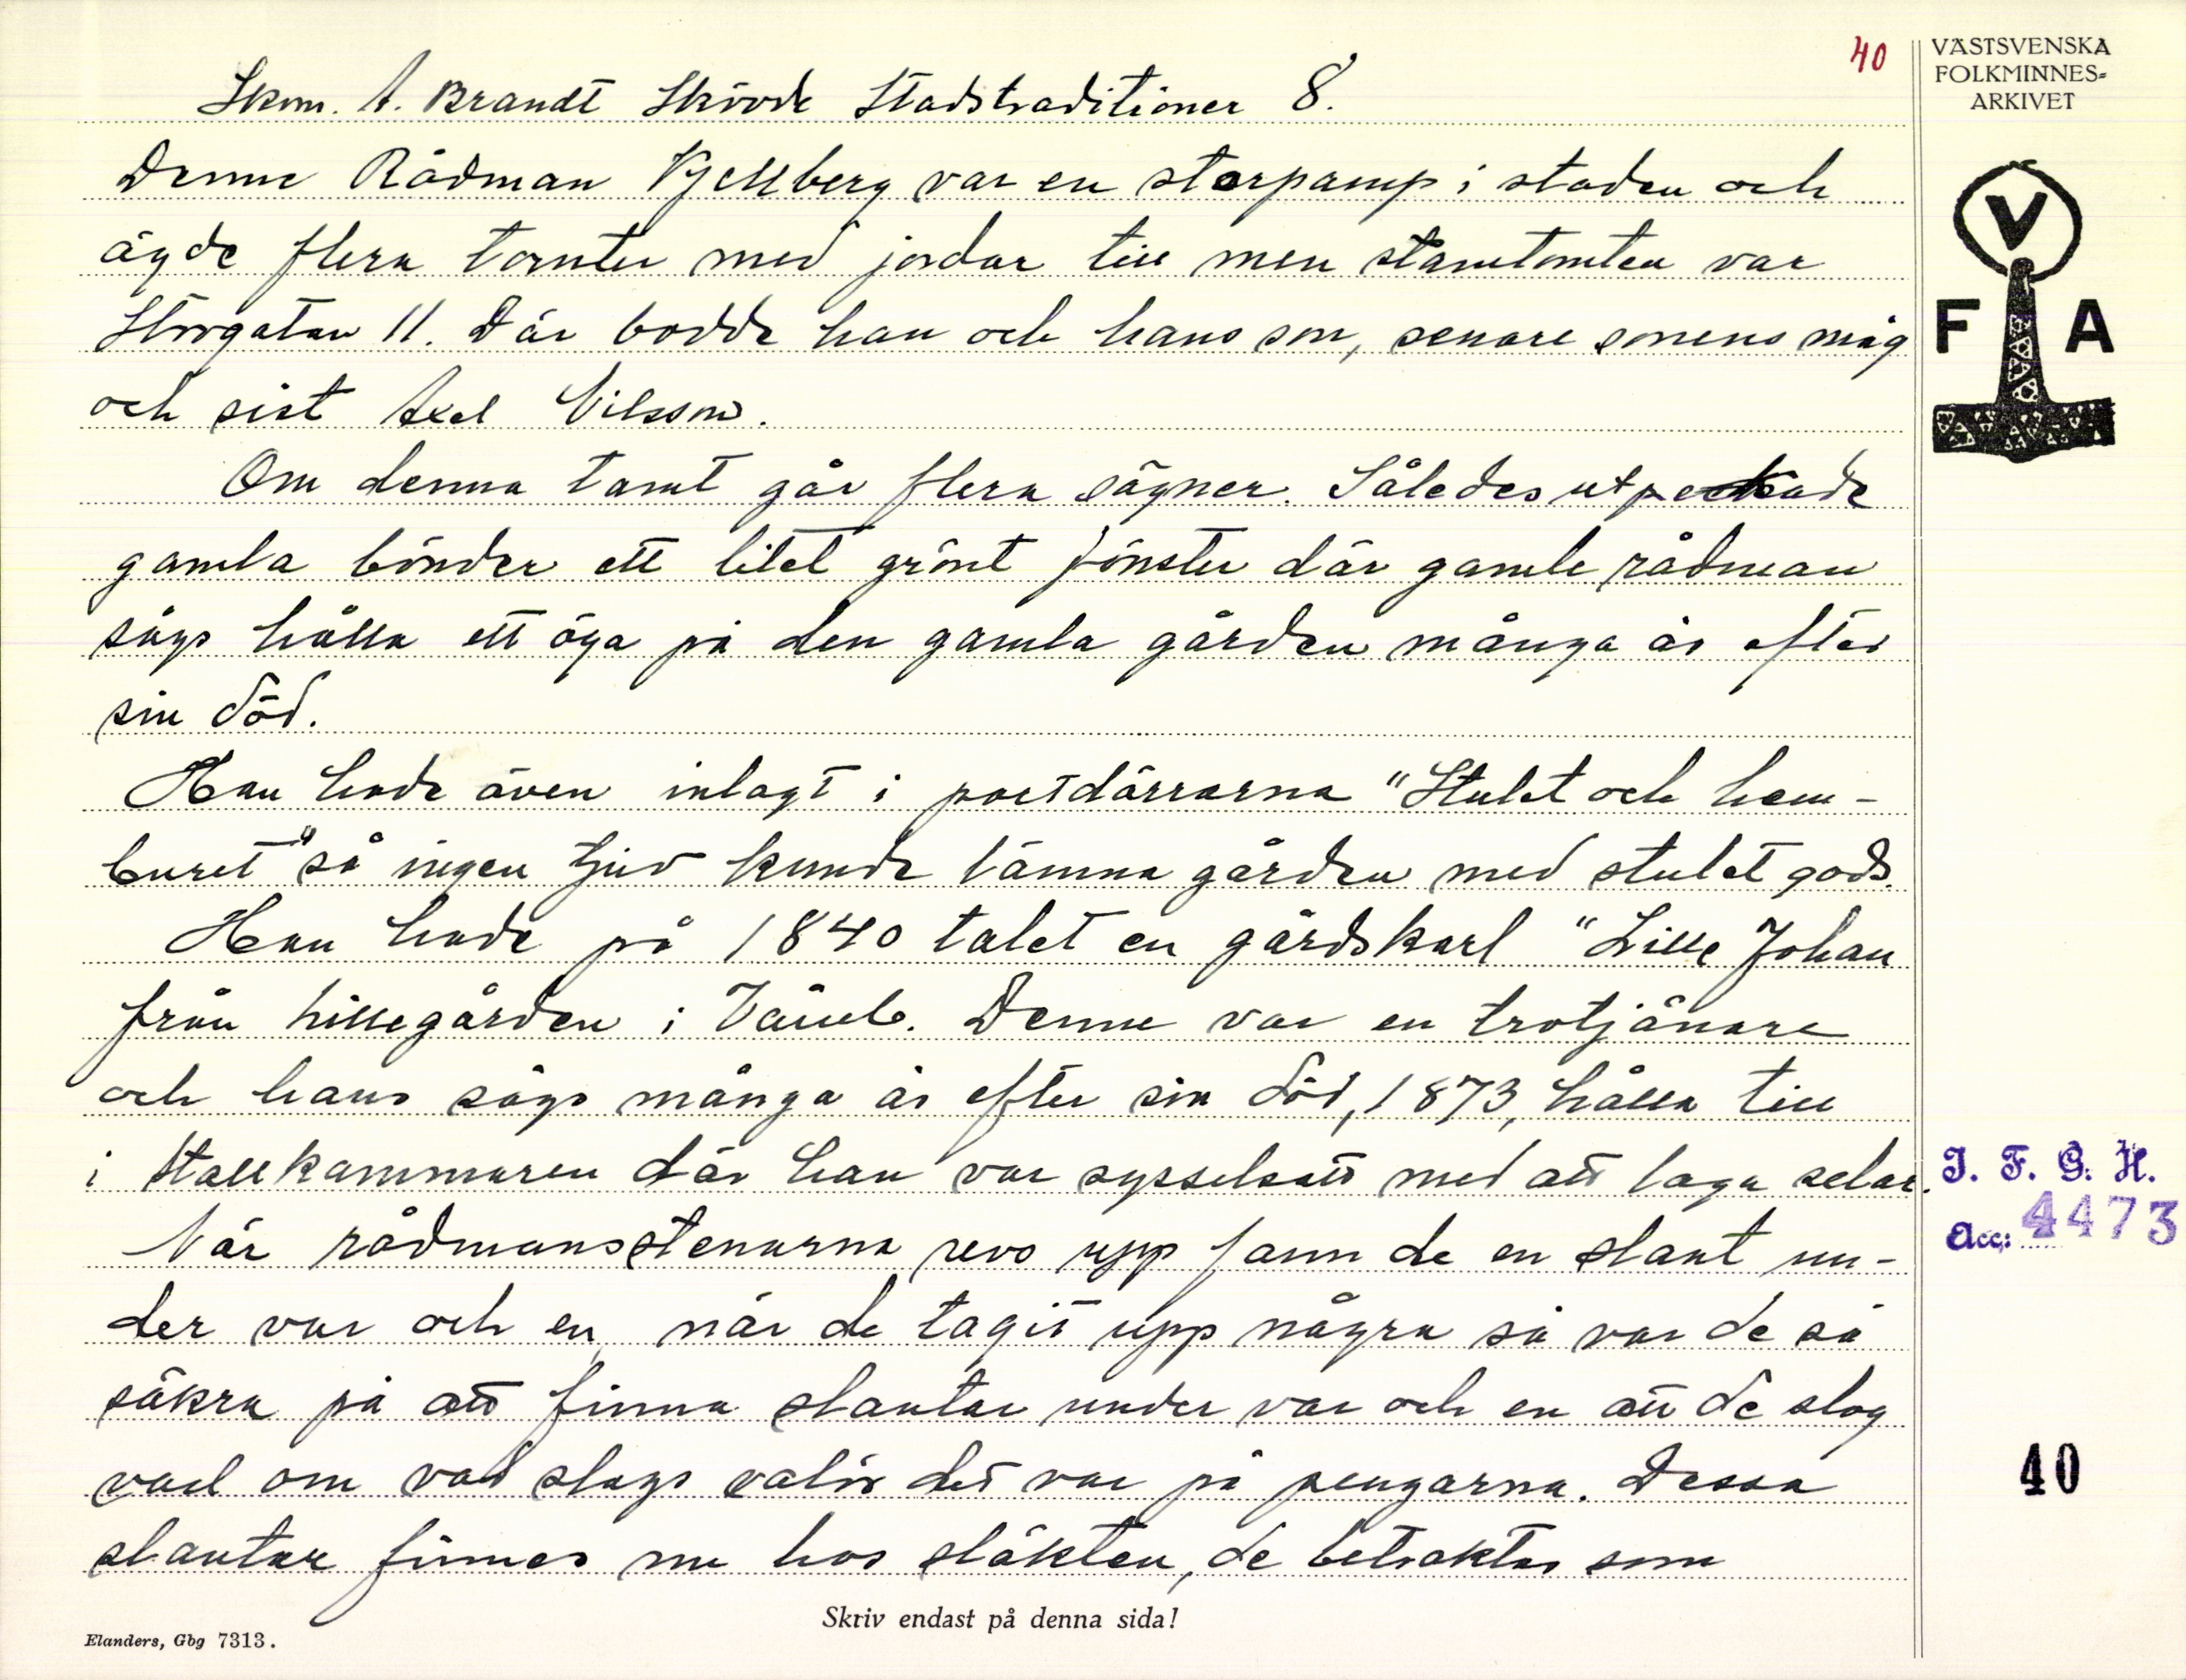 40
VÄSTSVENSKA
FOLKMINNES-
ARKIVET
V
F A
Skom. A. Brandt Skövde Stadstraditioner 8.
Denne Rådman Kjellberg var en storpamp i staden och
ägde flera tomter med jordar till men stamtomten var
Storgatan 11. Där bodde han och hans son, senare sonens måg
och sist Axel Nilsson.
Om denna tomt går flera sägner. Således utpekade
gamla bönder ett litet grönt fönster där gamle rådman
sågs hålla ett öga på den gamla gården många år efter
sin död.
Han hade även inlagt i portdörrarna "Stulet och hem-
buret" så ingen tjuv kunde lämna gården med stulet gods.
Han hade på 1840 talet en gårdskarl "Lille Johan
från Lillegården i Våmb. Denne var en trotjänare
och hans sågs många år efter sin död, 1873, hålla till
i Stallkammaren där han var sysselsatt med att laga selar.
När rådmansstenarna revs upp fann de en slant un-
der var och en, när de tagit upp några så var de så
säkra på att finna slantar under var och en att de slog
vad om vad slags valör det var på pengarna. Dessa
slantar finnes nu hos släkten, de betraktas som
I. F. G. H.
Acc: 4473
40
Skriv endast på denna sida!
Elanders, Gbg 7313.